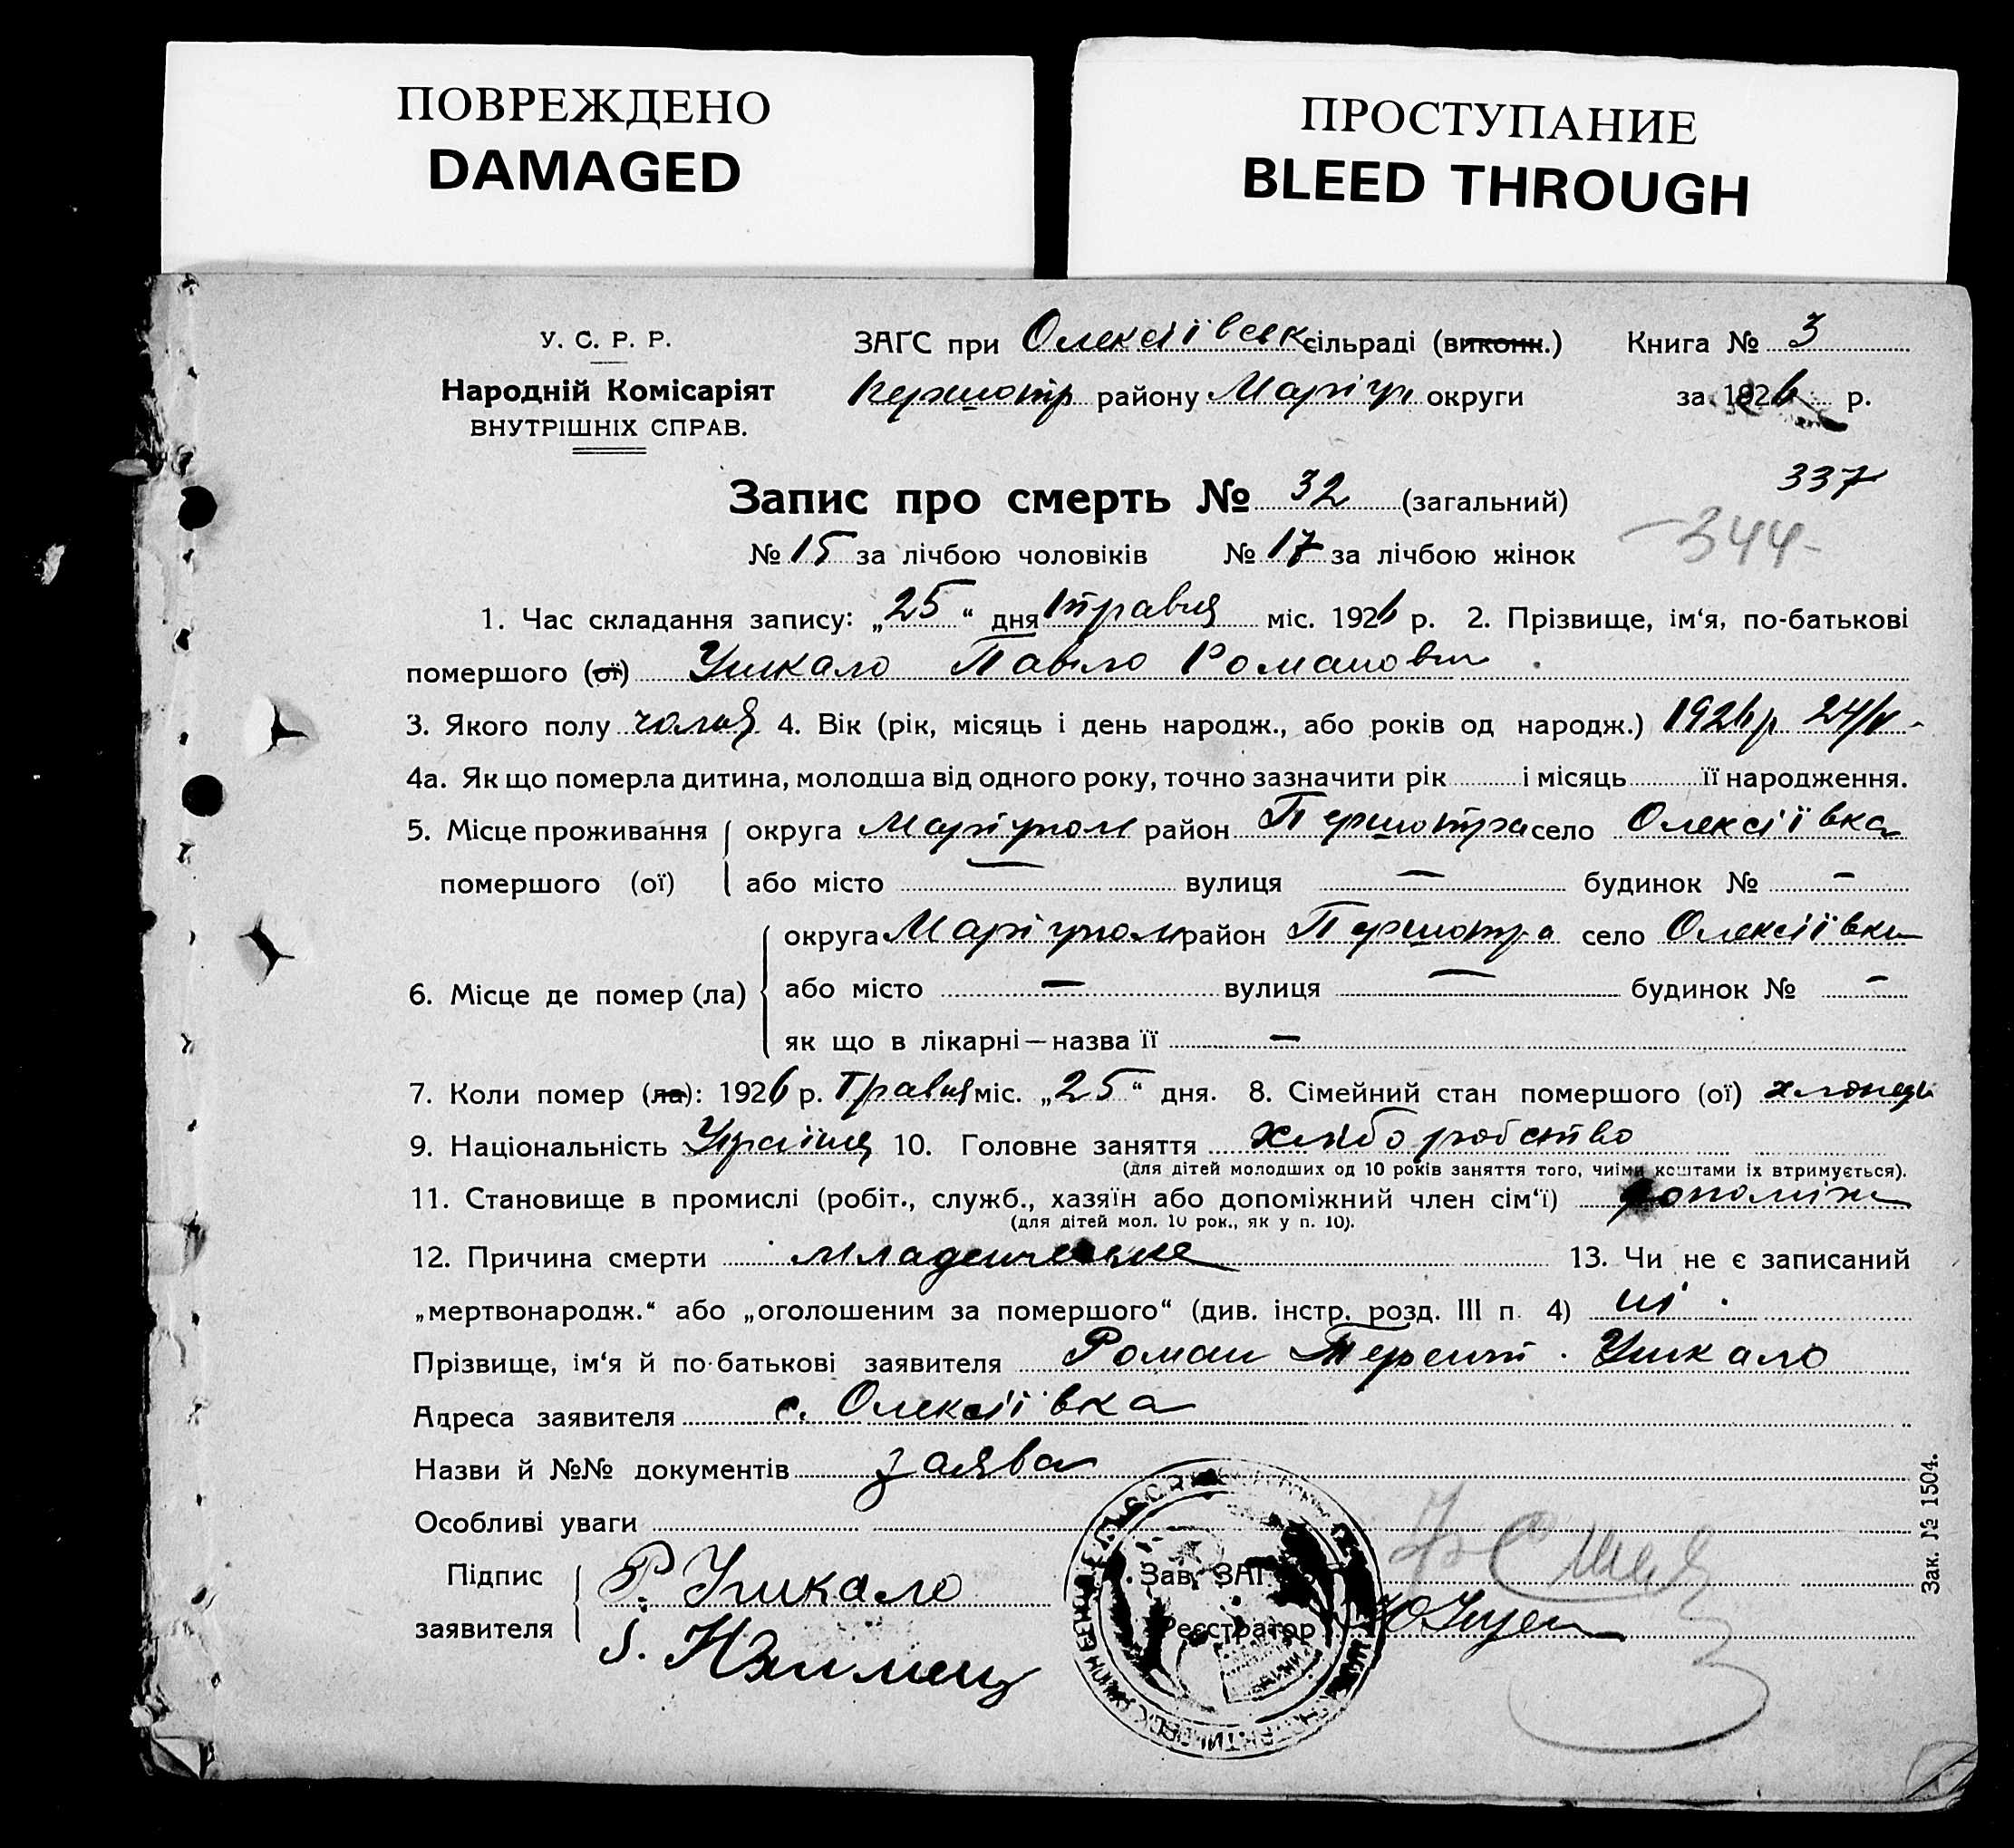 ПОВРЕЖДЕНО
DAMAGED
ПРОСТУПАНИЕ
BLEED THROUGH
У. С. Р. Р.
Народній Комісаріят
ВНУТРІШНІХ СПРАВ.
ЗАГС при Олексіївськ сільраді (виконк.) Книга № 3
Першотр району Маріуп округи за 1926 р.
337
Запис про смерть № 32 (загальний)
344
№ 15 за лічбою чоловіків № 17 за лічбою жінок
1. Час складання запису: „25“ дня травня міс. 1926 р. 2. Прізвище, ім‘я, по-батькові
помершого (ої) Ушкало Павло Романович
3. Якого полу 4. Вік (рік, місяць і день народж., або років од народж.) 1926 р 24/V
4а. Як що померла дитина, молодша від одного року, точно зазначити рік і місяць її народження.
5. Місце проживання помершого (ої) округа Маріупол район Першотра село Олексіївка
або місто — вулиця — будинок № —
6. Місце де помер (ла) округа Маріупол район Першотра село Олексіївка
або місто — вулиця — будинок № —
як що в лікарні — назва її —
7. Коли помер (ла): 1926 р. Травня міс. „25“ дня. 8. Сімейний стан помершого (ої) хлопець
9. Національність Україн 10. Головне заняття хліборобство
(для дітей молодших од 10 років заняття того, чиїми коштами їх втримується).
11. Становище в промислі (робіт., служб., хазяїн або допоміжний член сім‘ї) допоміж
(для дітей мол. 10 рок., як у п. 10).
12. Причина смерти младенческа 13. Чи не є записаний
„мертвонародж.“ або „оголошеним за помершого“ (див. інстр. розд. III п. 4) ні
Прізвище, ім‘я й по-батькові заявителя Роман Терент. Ушкало
Адреса заявителя с. Олексіївка
Назви й №№ документів заява
Особливі уваги
Підпис заявителя Р. Ушкало
Зав. ЗАГС
Реєстратор
Зак. № 1504.